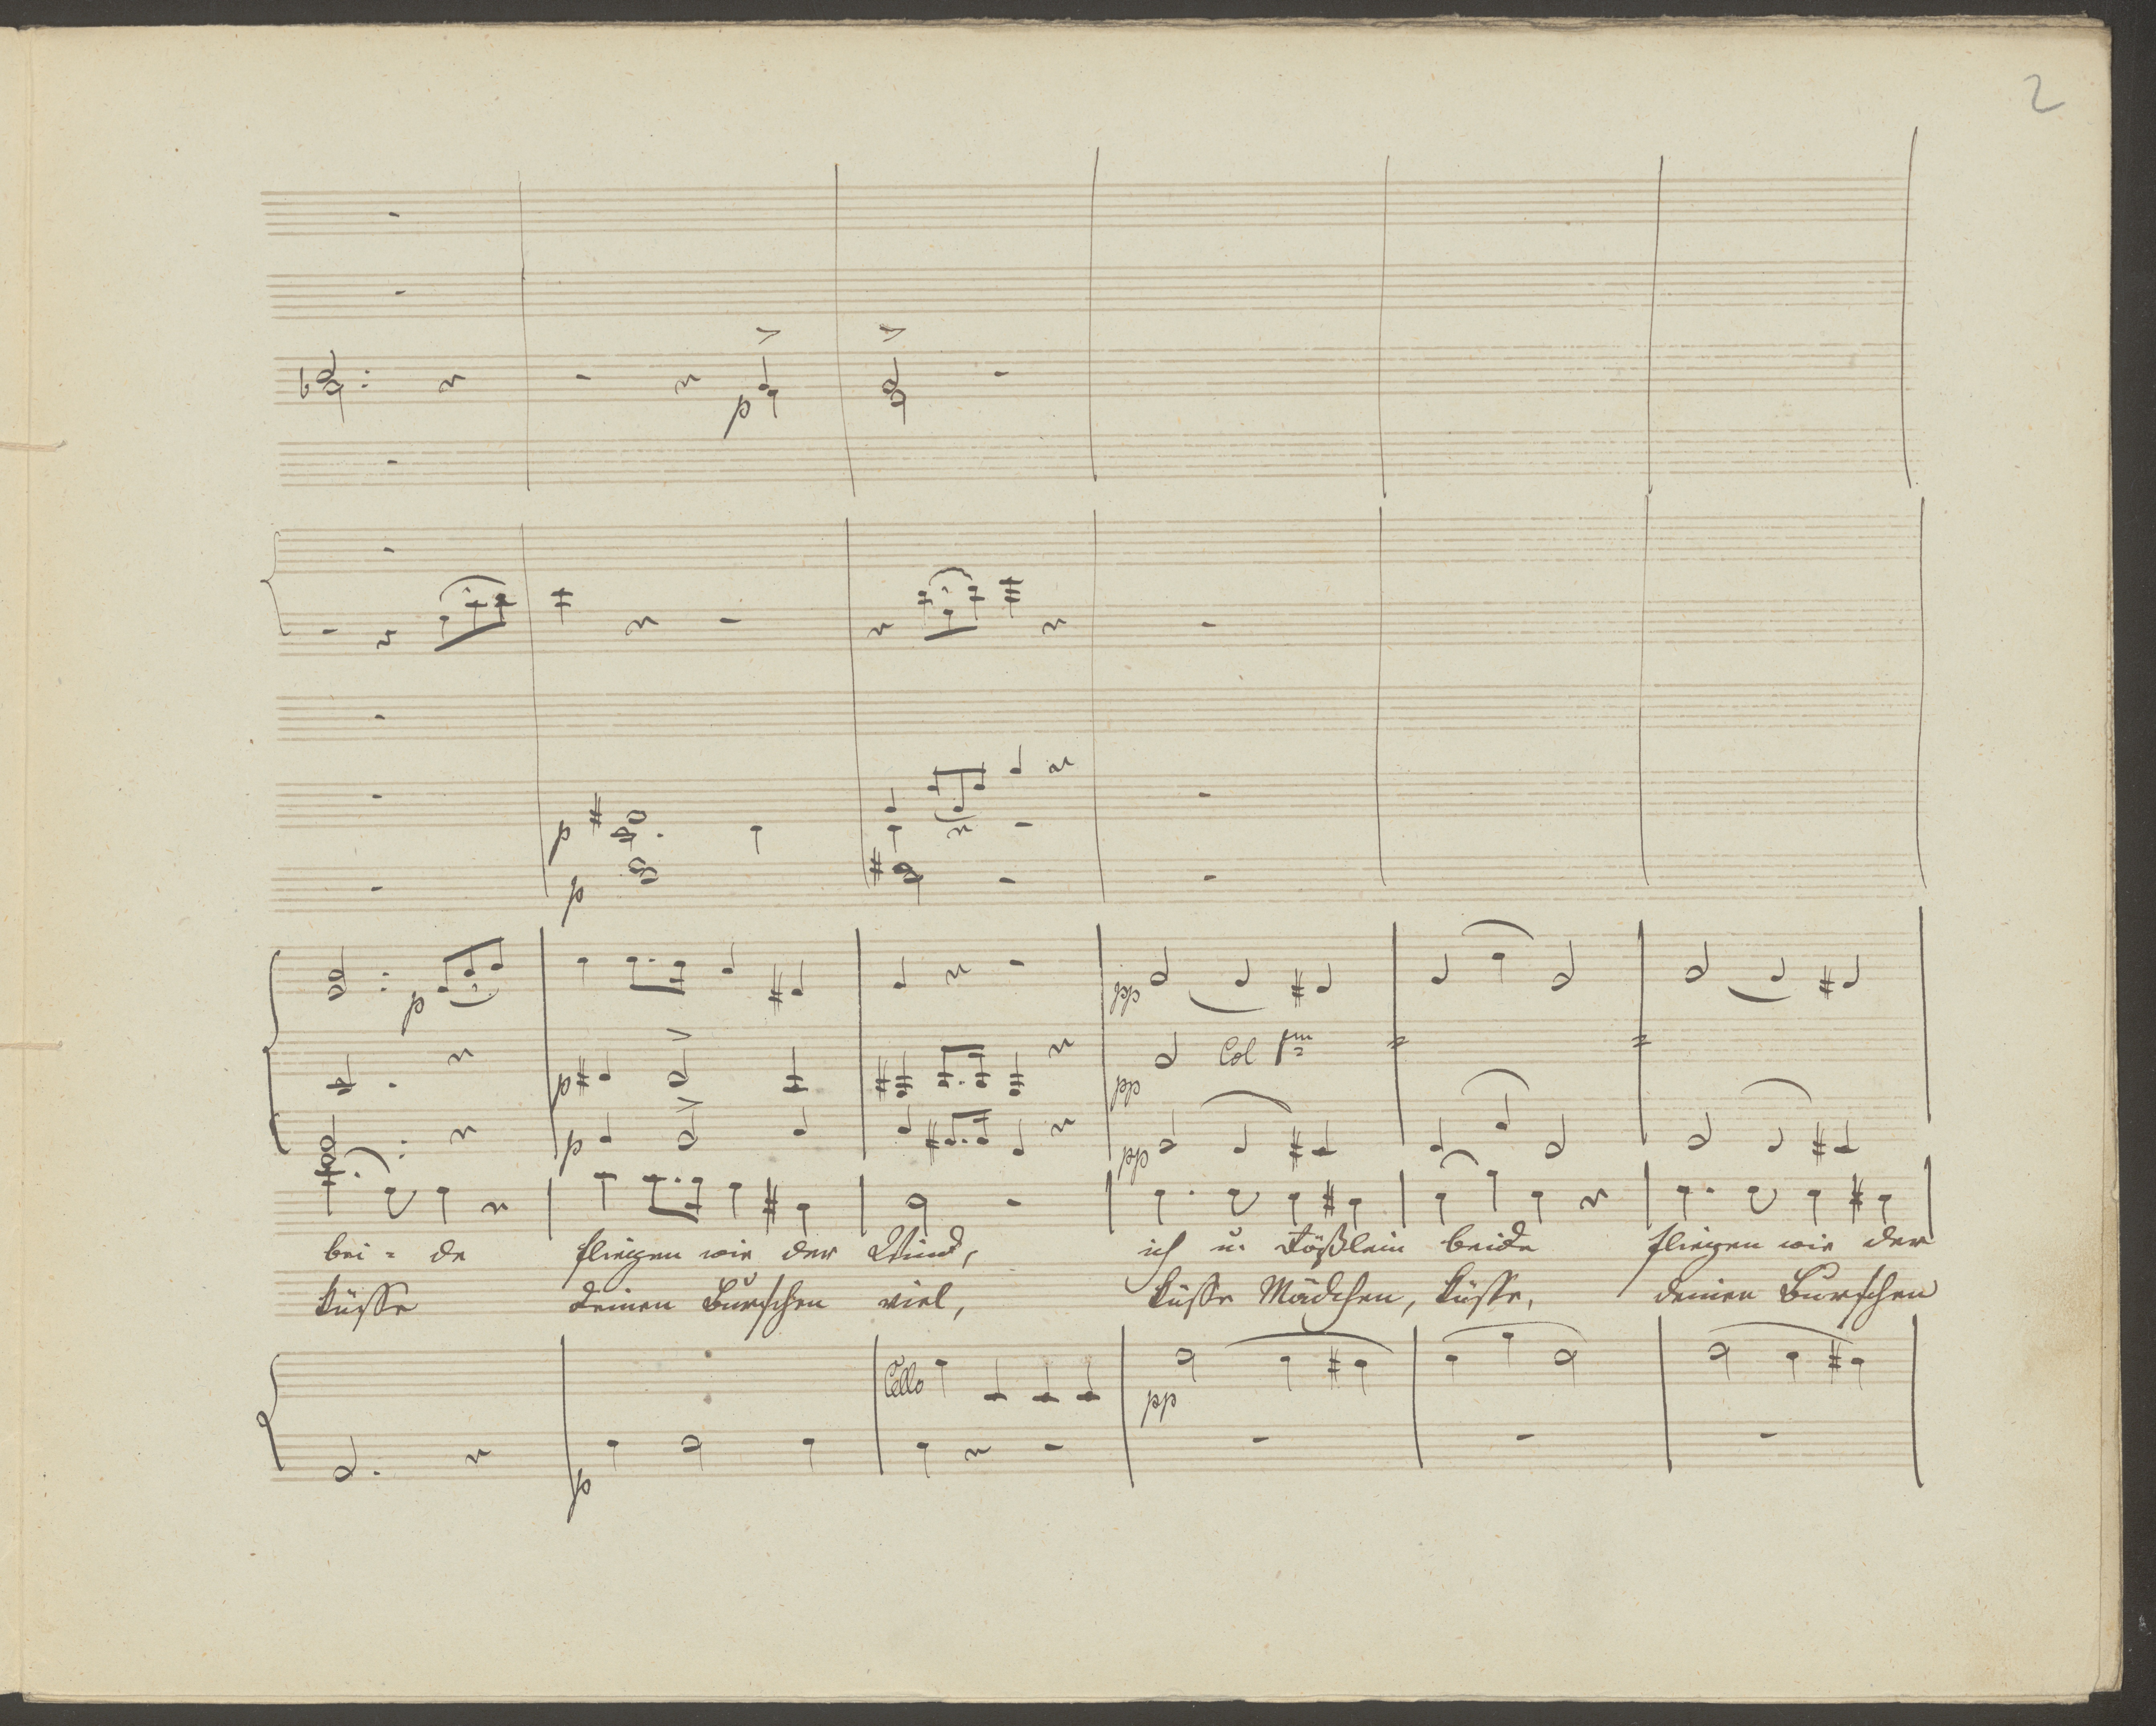 2
p
p
p
p
pp
p
pp
Col 1mo
p
pp
bei = de fliegen wie der Wind, ich u. Rößlein beide fliegen wie der
Küsse deinen Burschen viel, Küsse Mädchen, Küsse, deinen Burschen
Cello
pp
p